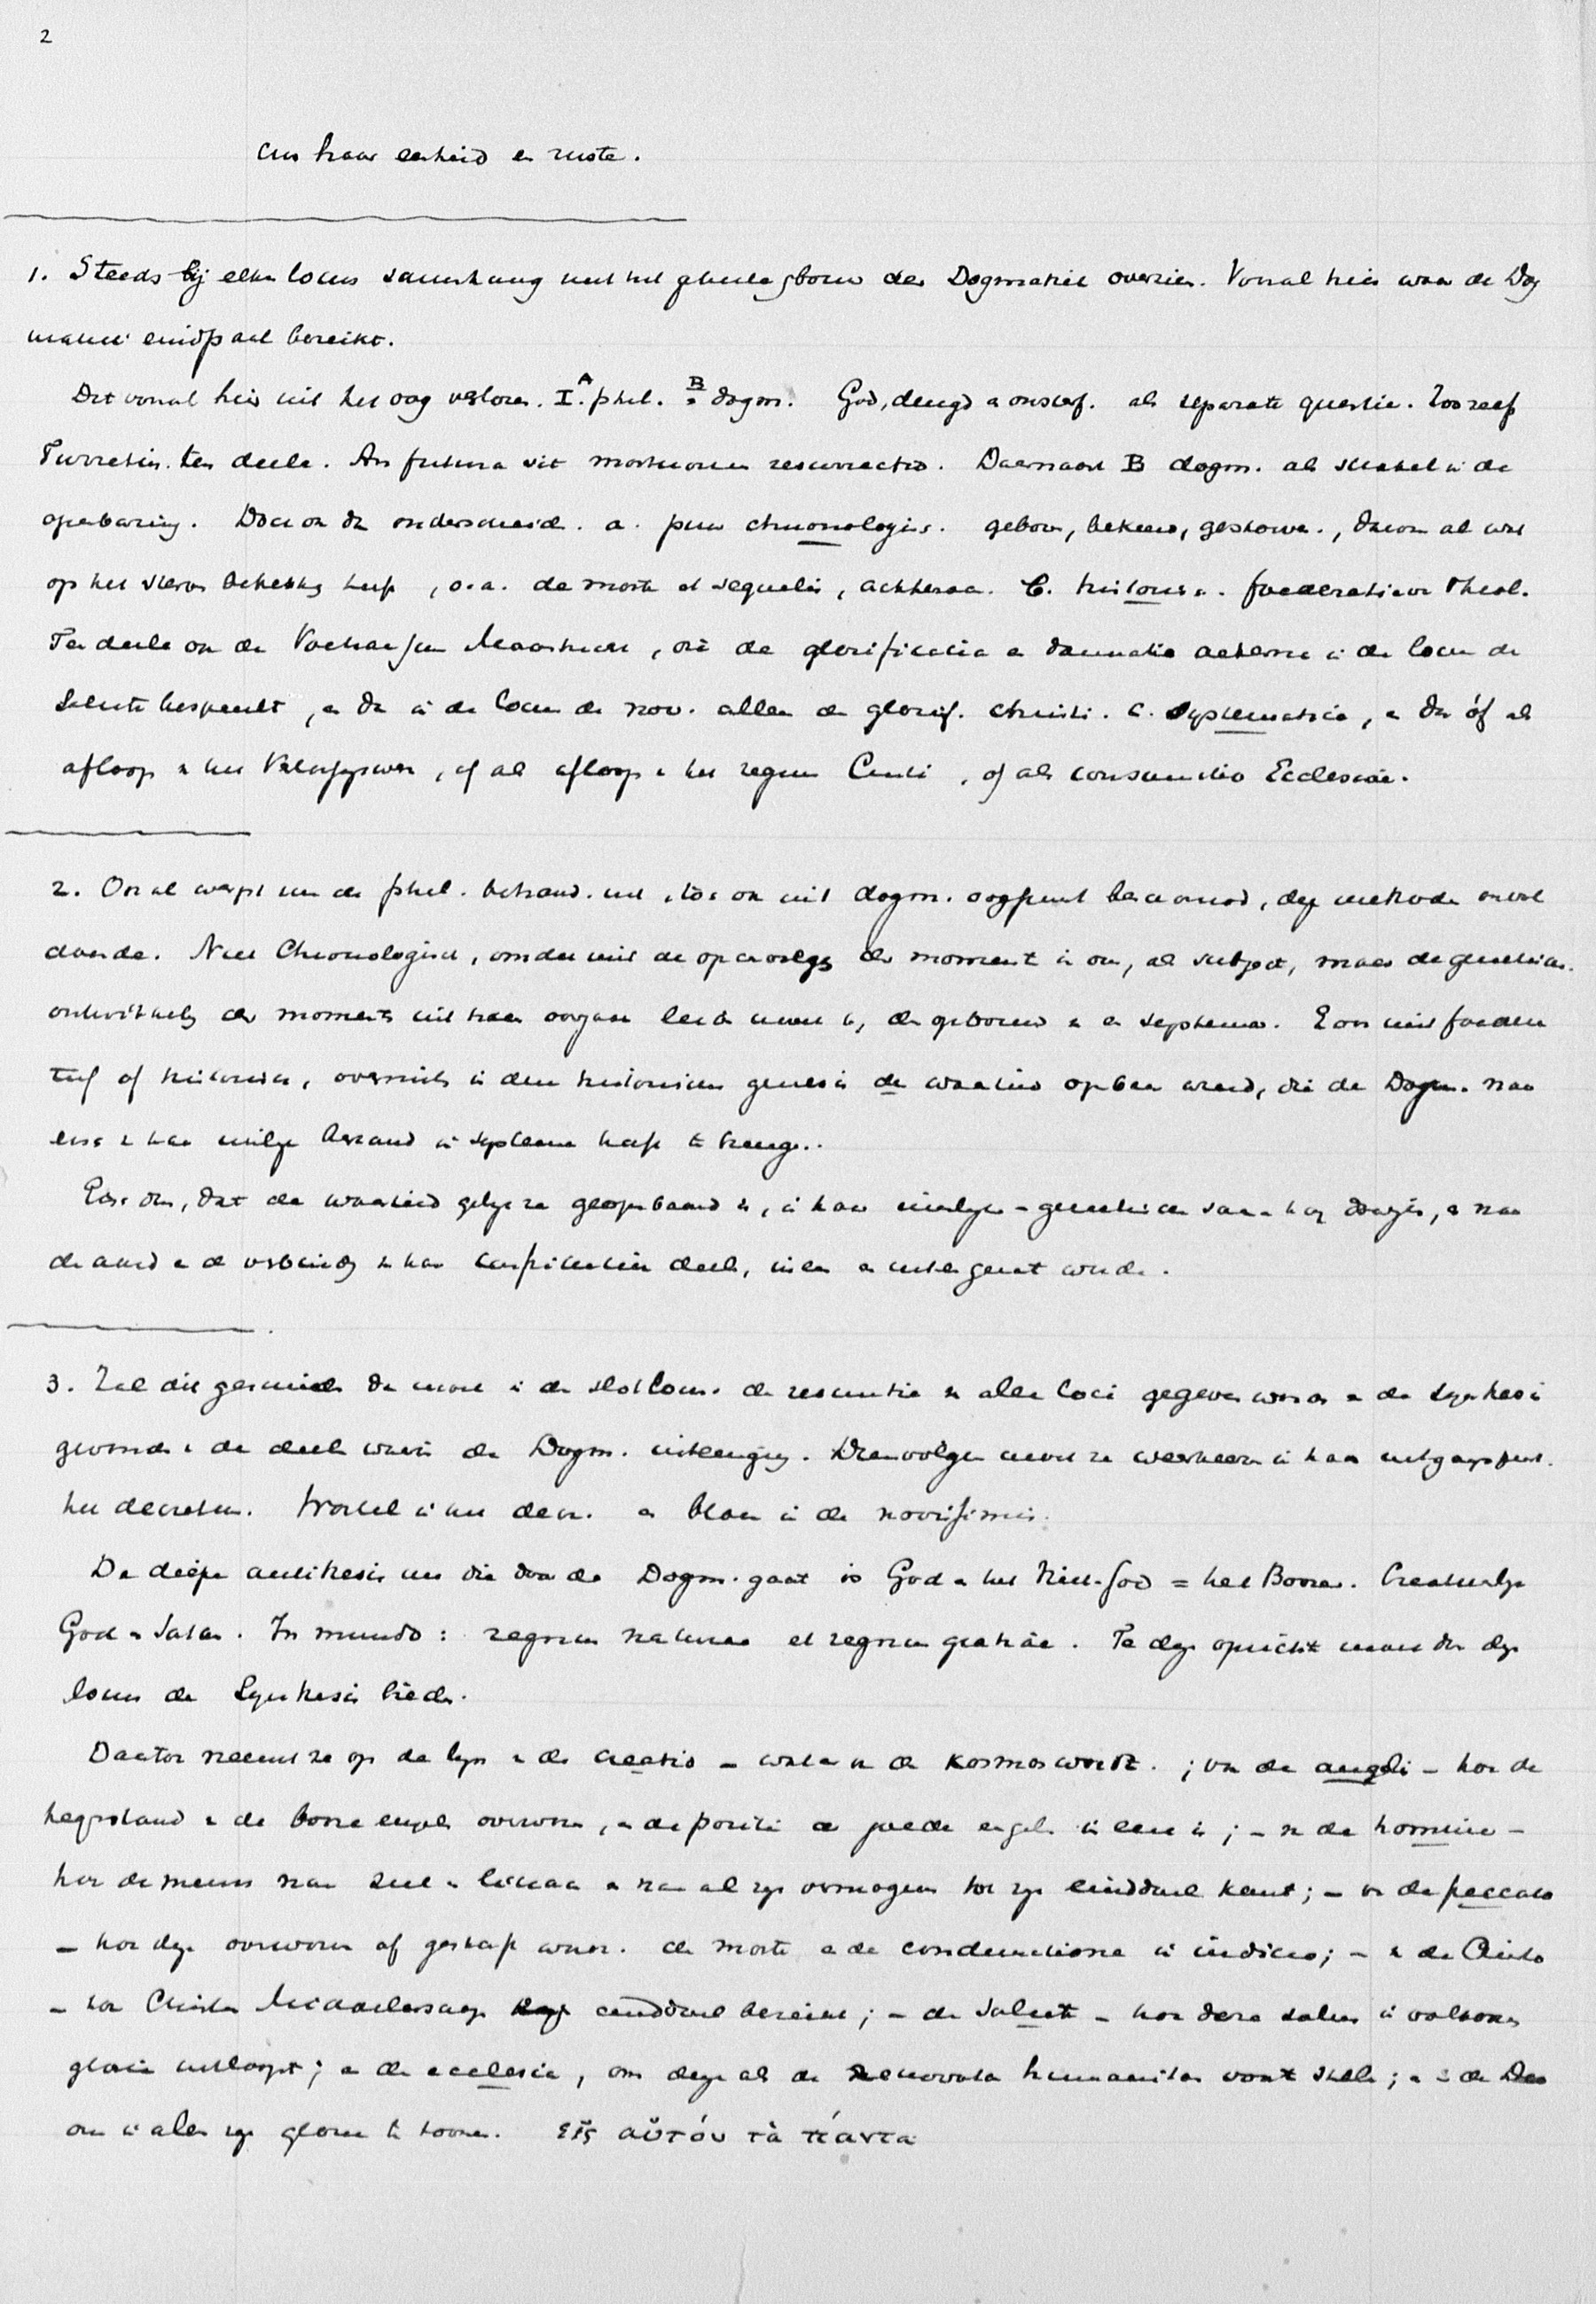 2
aan haar eenheid en ruste.
1. Steeds bij elken locus samenhang met het geheele gebouw der Dogmatiek overzien. Vooral hier waar de Dog
matiek eindpaal bereikt.
Dat vooral hier uit het oog verloren. I. A phil. B dogm. God, deugd en onsterf. als separate questie. Zoo reeds
Turretin. ten deele. An futura sit mortuorum resurrectio. Daarnaast B dogm. als schakel in de
openbaring. Doch ook dan onderscheid. a. puur chronologisch. geboren, bekeerd, gestorven., daarom al wat
op het sterven betrekking heeft, o.a. de morte et sequelis, achteraan. b. historisch. foederatieve Theol.
Ten deele ook de van Maastricht, die de glorificatio en damnatio aeterna in de locus de
Salute bespreekt, en dan in de locus de nov. alleen de glorif. Christi. c. Systematisch, en dan óf als
afloop van het , of als afloop van het regnum Christi, of als consummatio Ecclesiae.
2. Ook al werpt men de phil. behand. uit, toch ook uit dogm. oogpunt beschouwd, deze methode onvol
doende. Niet Chronologisch, omdat niet de opeenvolging der momenten in ons, als subject, maar de genetische
ontwikkeling der momenten uit haar oorzaak leidt moet in, de gebouw van een systema. Evenmin foedera
tief of historisch, overmits in den historischen genesis de waarheid openbaar werd, die de Dogm. naar
eisch van haar innige verband in systeem heeft te brengen.
Eisch dus, dat de waarheid gelijk ze geopenbaard is, in haar innerlijken - genetischen samenhang , en naar
de aard en de verbinding van haar deelen, uiteen gezet worde.
3. Zal dit geschieden dan moet in de slotlocus de resumtie van alle loci gegeven worden en de synthesis
gevonden in de deelen waarin de Dogm. uiteenging. Dienvolgens moet ze weerkeeren in haar uitgangspunt.
het decretum. Wortel in het decr. en bloem in de novissimis.
De diepe antithesis nu die door de Dogm. gaat is God en het Niet-God = het Booze. Creatuurlijk
God en Satan. In mundo: regnum naturae et regnum gratiae. Te dezen opzicht moet dan deze
locus de Synthesis bieden.
Daartoe neemt ze op de lijn van de creatio - wat er van de kosmos wordt.; van de angeli - hoe de
tegenstand van de booze engelen overwonnen, en de positie der goede engelen is; - van de homine -
hoe de mensch naar ziel en lichaam en naar al zijn vermogens tot zijn einddoel komt; - van de peccato
- hoe deze overwonnen of gestraft wordt. de morte en de condemnatione in iudicio; - van de Christo
- hoe Christus Middelaarschap einddoel bereikt; - de Salute - hoe deze salus in voltooide
gloria uitloopt; en de ecclesia, om deze als de renovata humanitas voor te stellen; en de Deo
om in allen zijn glorie te toonen. εἰς αὐτόν τὰ πάντα